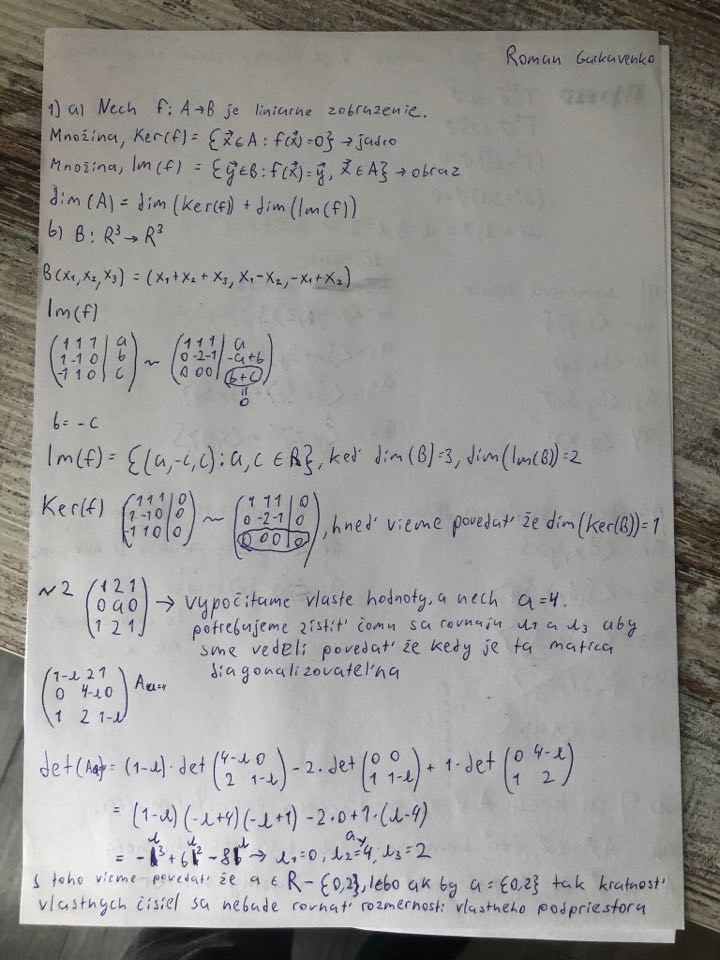 Roman Garkavenko
1) a) Nech f: A→B je liniarne zobrazenie.
Množina, Ker(f) = {x⃗∈A : f(x⃗)=0} → jadro
Množina, Im(f) = {y⃗∈B : f(x⃗)=y⃗, x⃗∈A} → obraz
dim(A) = dim(Ker(f)) + dim(Im(f))
b) B: R³→R³
B(x₁,x₂,x₃) = (x₁+x₂+x₃, x₁-x₂, -x₁+x₂)
Im(f)
(1 1 1 | a) ~ (1 1 1 | a)
(1 -1 0 | b) (0 -2 -1 | -a+b)
(-1 1 0 | c) (0 0 0 | b+c)
= 0
b = -c
Im(f) = {(a,-c,c) : a,c ∈ R}, keď dim(B)=3, dim(Im(B))=2
Ker(f) (1 1 1 | 0) ~ (1 1 1 | 0)
(1 -1 0 | 0) (0 -2 -1 | 0), hneď vieme povedať že dim(Ker(B))=1
(-1 1 0 | 0) (0 0 0 | 0)
~2 (1 2 1) → vypočítame vlaste hodnoty, a nech a=4.
(0 a 0) potrebujeme zistiť čomu sa rovnaju л₁ a л₃ aby
(1 2 1) sme vedeli povedať že kedy je ta matica
diagonalizovateľna
(1-л 2 1)
(0 4-л 0)
(1 2 1-л)
det(A) = (1-л)·det (4-л 0) - 2·det (0 0) + 1·det (0 4-л)
(2 1-л) (1 1-л) (1 2)
= (1-л)(-л+4)(-л+1) - 2·0 + 1·(л-4)
= -л³+6л²-8л → л₁=0, л₂=4, л₃=2
s toho vieme povedať že a ∈ R - {0,2}, lebo ak by a = {0,2} tak kratnosť
vlastnych čisiel sa nebude rovnať rozmernosti vlastneho podpriestoru